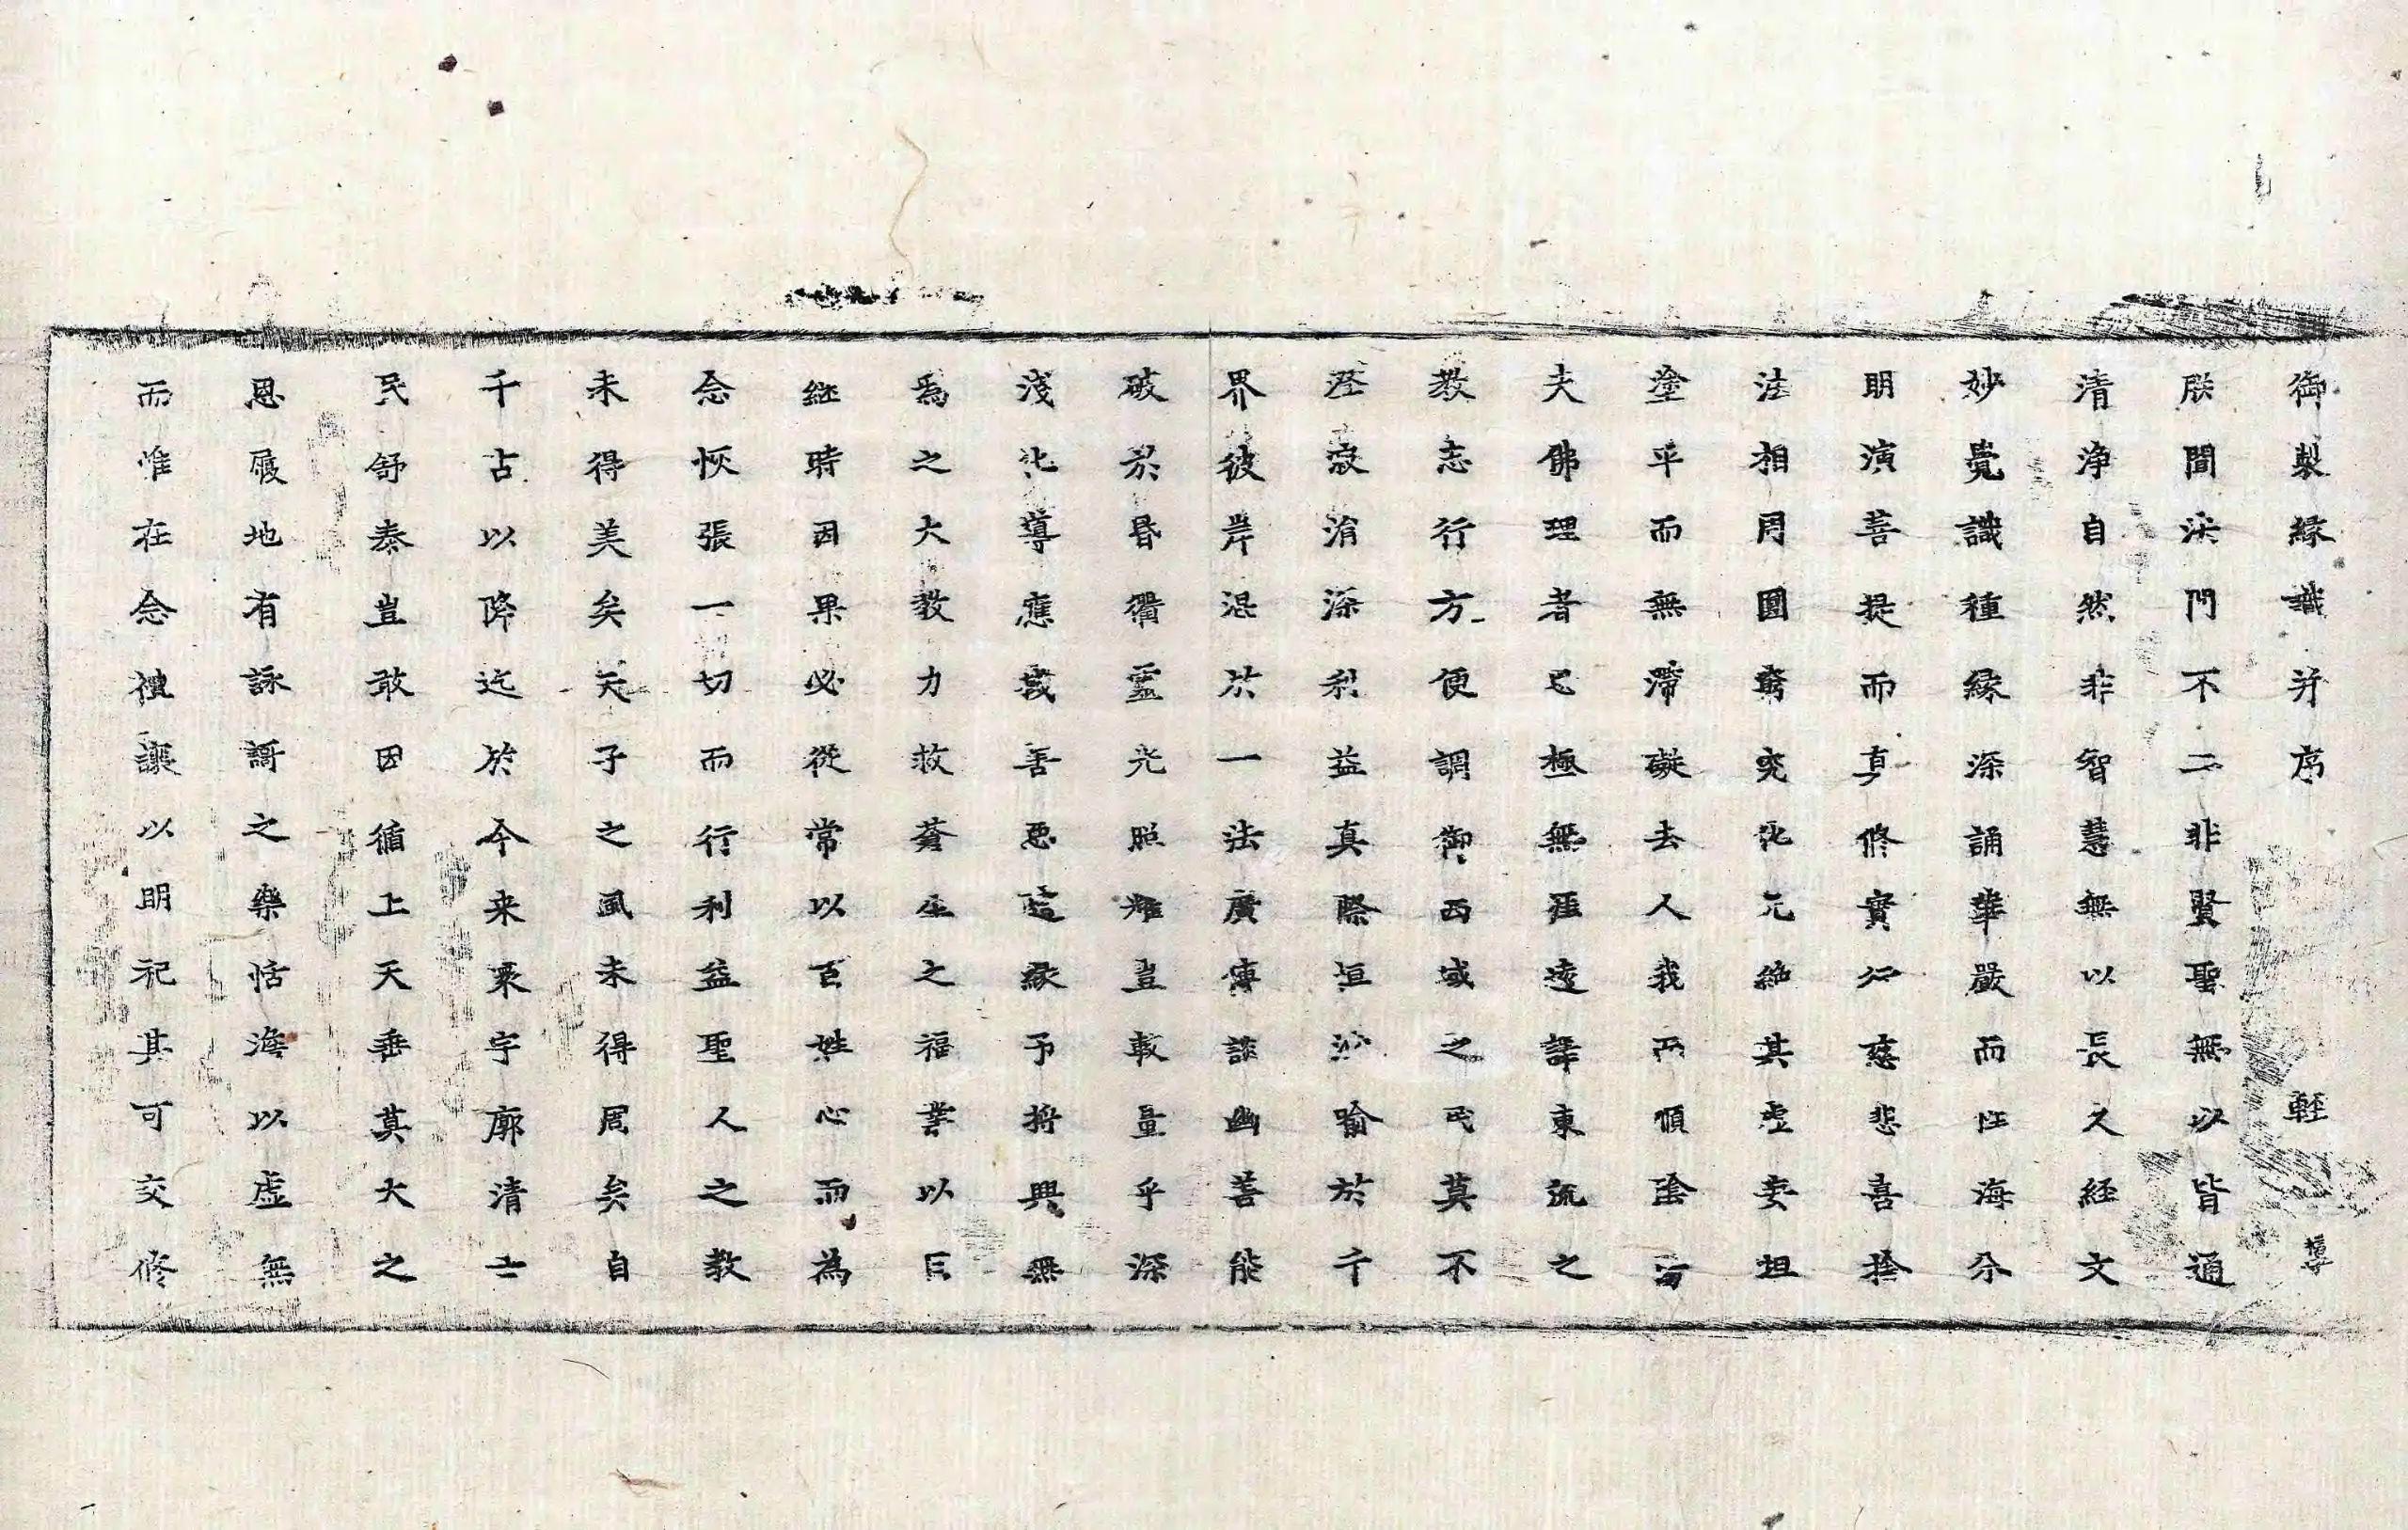 御製縁識并序 輕
朕聞法門不二非賢聖無以皆通
清浄自然非智慧無以長久経文
妙覺識種縁深誦華嚴而性海分
明演菩提而真修實行慈悲喜捨
法相同圓窮究化元絶其虚妄坦
塗平而無滯礙去人我而順陰
夫佛理者已極無涯遠譯東流之
教志行方便調御西域之民莫不
澄寂消深利益真際垣沙喻於千
界彼岸混於一法廣傳談幽善能
破於昏衢靈光照耀豈載量乎深
淺化導應裁善惡隨緣予將興無
爲之大教力救蒼生之福業以日
継時因果必從常以百姓心而為
念恢張一切而行利益聖人之教
未得美矣天子之風未得周矣自
千古以降迄於今来寰宇廓清士
民舒泰豈敢因循上天垂莫大之
恩履地有詠謌之樂恬澹以虚無
而惟在念禮讓以明祀其可交修